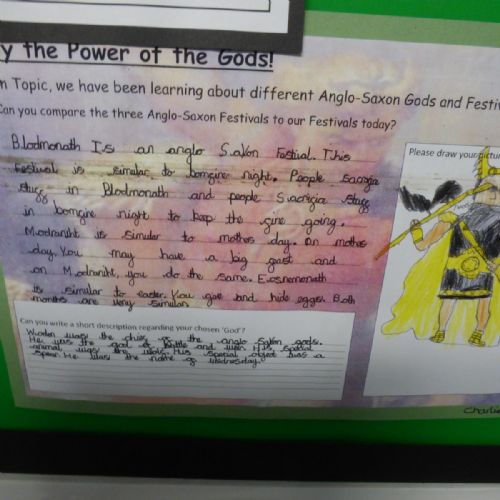 y the Power of the Gods!
n Topic, we have been learning about different Anglo-Saxon Gods and Festiv
Can you compare the three Anglo-Saxon Festivals to our Festivals today?
Blodmonath Is an anglo Saxon Fastial. This
festival is simular to bomgire night. People sacricia
stugg in Blodmonath and people Sacricia stugg
in bomgire night to keep the gire going.
Modraniht is simular to mothes day. On mothes
day. You may have a big geast and
on Modraniht, you do the same. Eosnemonath
is simular to easter. You give and hide eggs. Both
months are very simular.
Please draw your pictur
Can you write a short description regarding your chosen 'God'?
Woden was the chieg og the anglo saxon gods.
He was the god of battle and won. His special
animal was the wole. His special object was a
spear. He was the name og wednesday.
Charlie